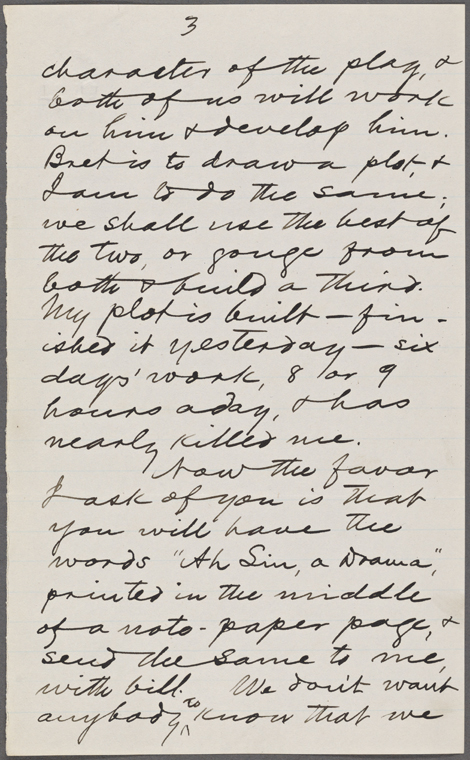 3
character of the play, &
both of us will work
on him & develop him.
Bret is to draw a plot, &
I am to do the same;
we shall use the best of
the two, or gouge from
both & build a third.
My plot is built — fin-
ished it yesterday — six
days' work, 8 or 9
hours a day, & has
nearly killed me.
Now the favor
I ask of you is that
you will have the
words "Ah Sin, a Drama",
printed in the middle
of a note-paper page, &
send the same to me,
with bill. We don't want
anybody to know that we